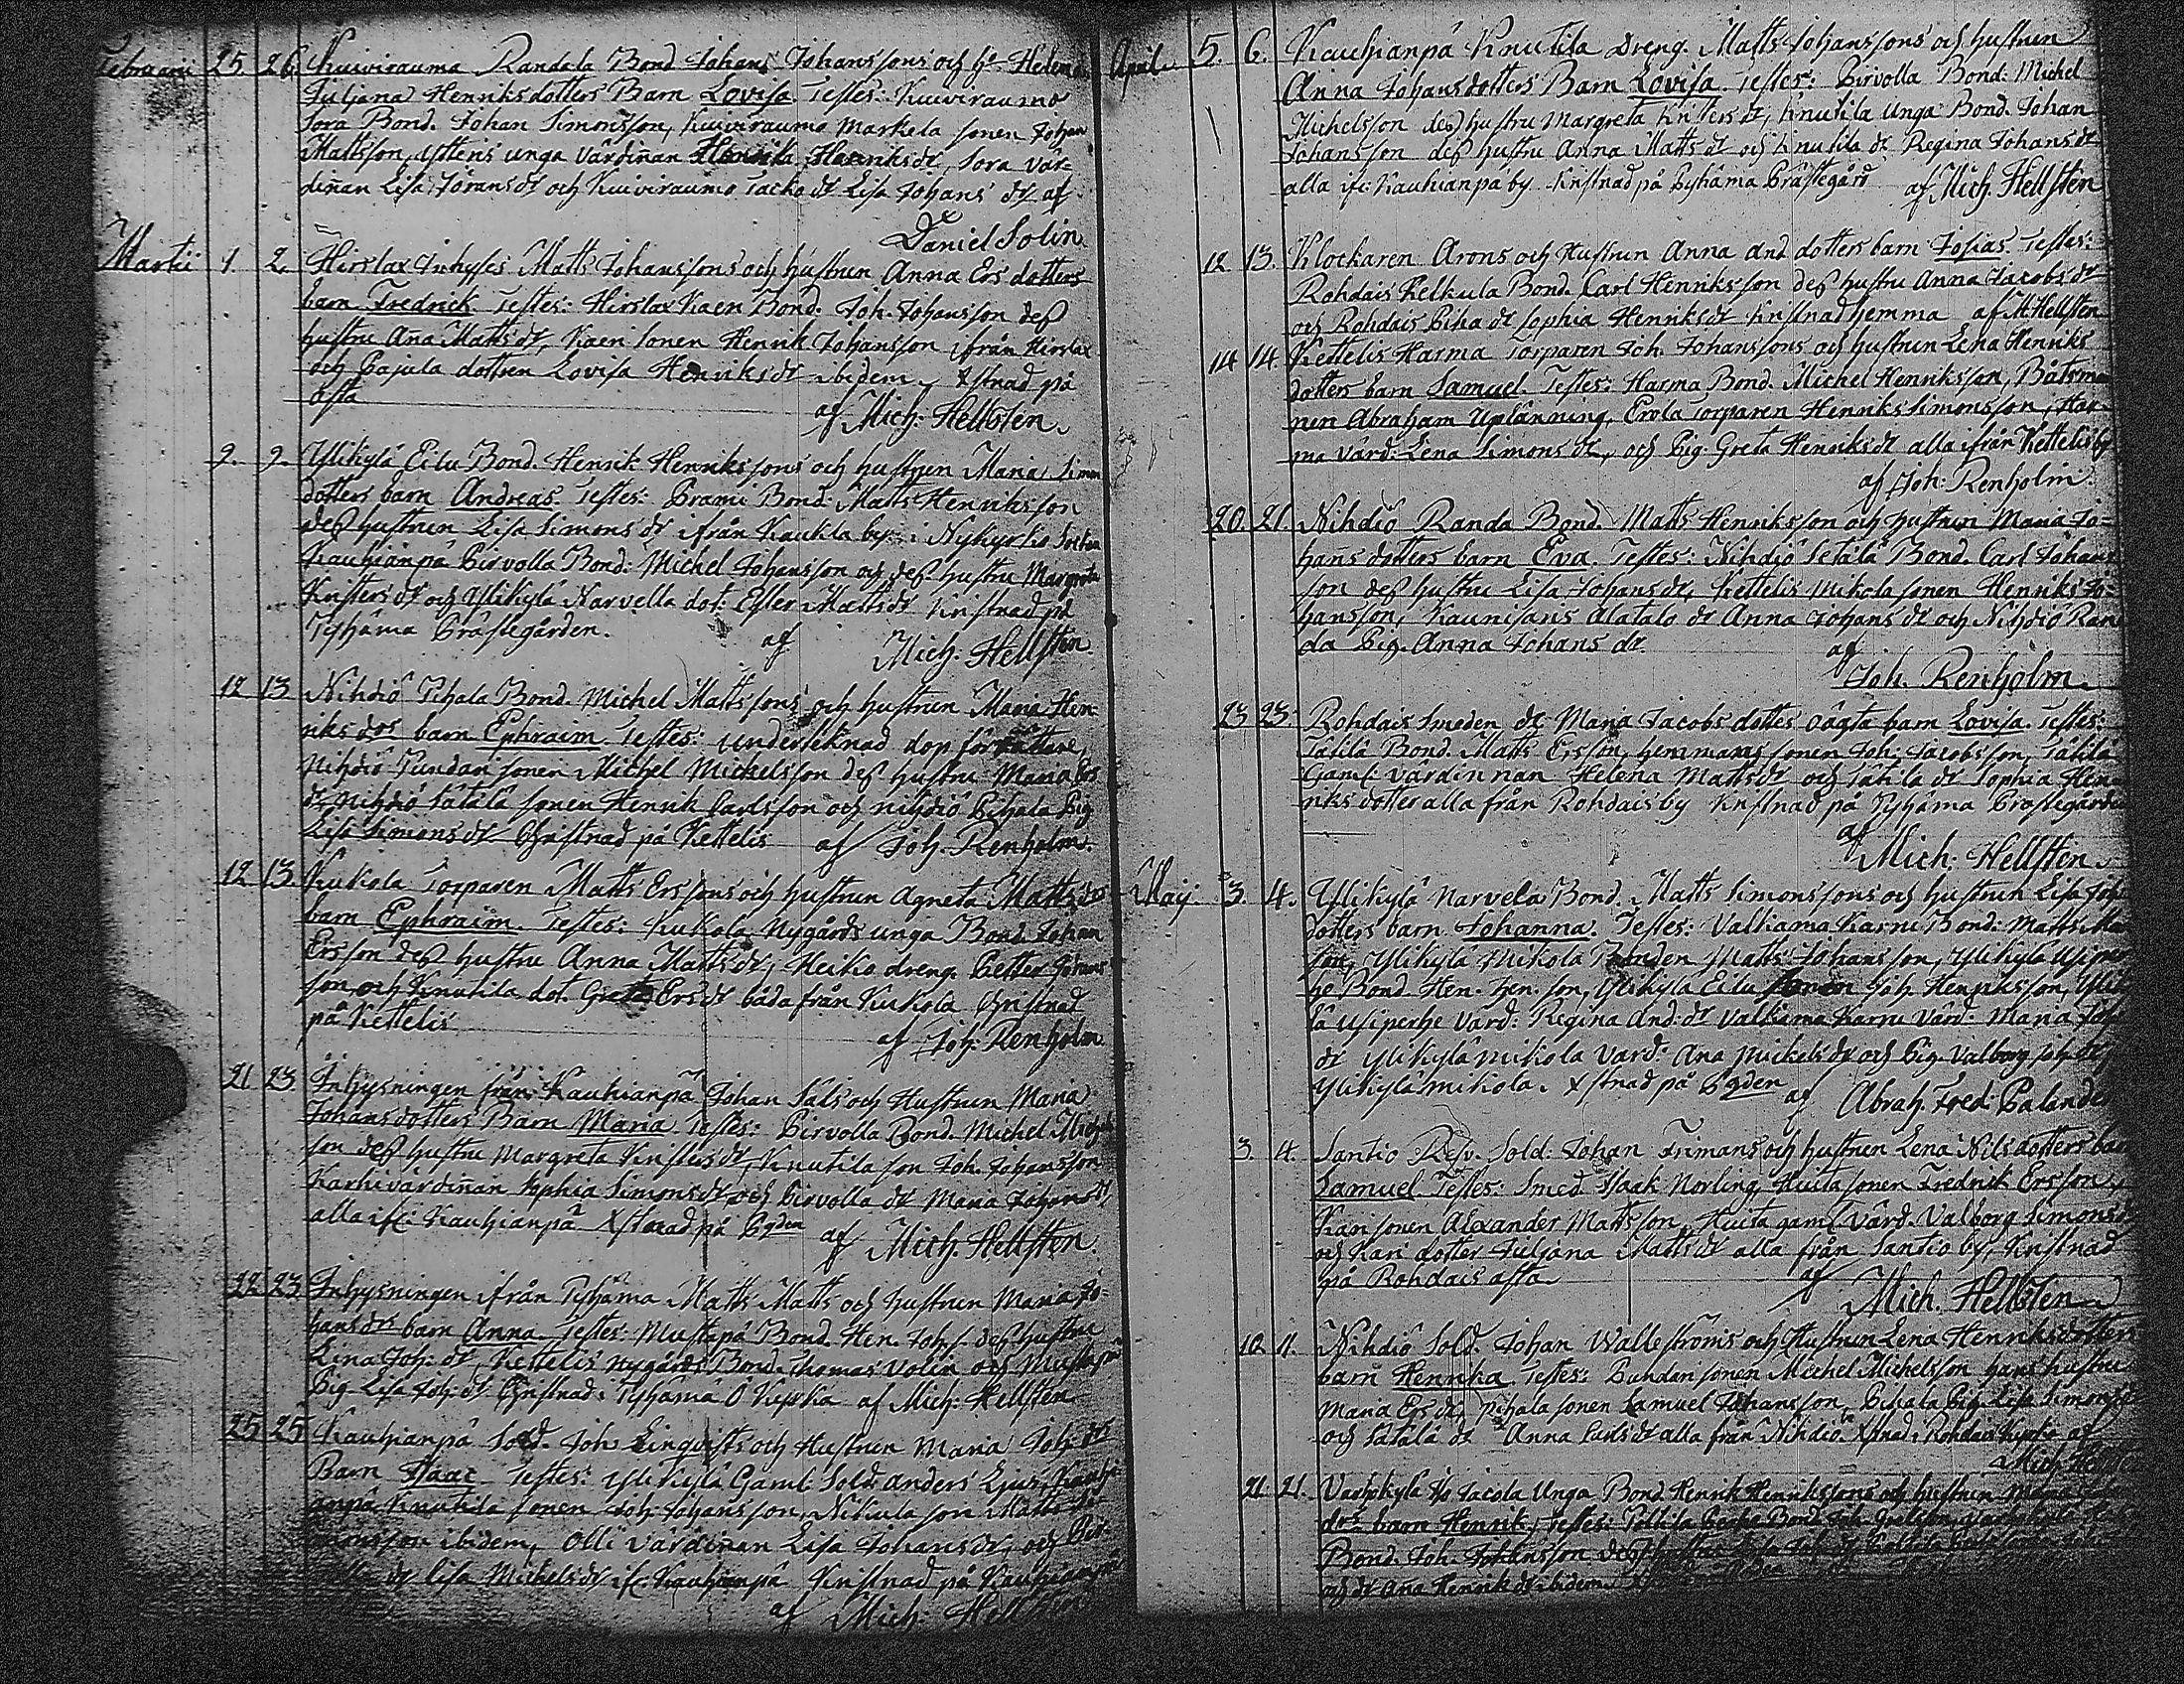 Februarii 25. 26. Kuivirauma Randala Bond Johans Johanssons och h: Helena
Juljana Henriksdotters Barn Lovisa. Testes: Kuivirauma
Sora Bond. Johan Simonsson, Kuivirauma Markela sonen Johan
Mattsson, ytteris unga värdiñan Henrika Henriksdr, Sora vär-
diñan Lisa Jöransdr och Kuivirauma Tacko dr Lisa Johans dr af
Daniel Solin
Martii 1. 2. Hirslax Inhyses Matts Johanssons och hustrun Anna Ers dotters
barn Fredrick Testes: Hirslax Kaen Bond. Joh. Johansson dess
hustru Aña Matts dr, Kaen sonen Henrik Johansson ifrån Hirslax
och Pajula dottren Lovisa Henriks dr ibidem, Xstnad på
asta
af Mich: Hellsten.
9. 9. Ylikylä Eilu Bond. Henrik Henrikssons och hustrun Maria Simons
dotters barn Andreas Testes: Prami Bond: Matts Henriksson
dess hustrun Lisa Simons dr ifrån Kaukla by i Nykyrko Sockn
Kauhianpä Pirvolla Bond. Michel Johansson och dess hustru Margreta
Kristers dr och Ylikylä Narvella dot. Ester Matts dr Kristnad på
Pyhäma Prästegården. af Mich. Hellsten
12 13 Nihdiö Pihala Bond. Michel Matts sons och hustrun Maria Hen
riks dors barn Ephraim. Testes: undertecknad dop förrättare,
Nihdiö Pundari sonen Michel Michelsson dess hustru Maria Ers
dr, Nihdiö Sätälä sonen Henrik Carlsson och nihdiö Pihala Pig
Lisa Simons dr Christnad på Kettelis af Joh. Renholm.
12 13. Kukola Torparen Matts Erssons och hustrun Agneta Matts dors
barn Ephraim. Testes: Kukola Nygårds unga Bond. Johan
Ersson dess hustru Anna Matts dr, Heikio dreng. Petter Johans
son, och Knutila dot. Greta Ers dr båda från Kukola Christnad
på Kettelis
af Joh: Renholm
21 23 Inhysningen från Kauhianpä Johan Sals och Hustrun Maria
Johansdotters Barn Maria Testes: Pirvolla Bond. Michel Michels
son dess hustru Margreta Kristers dr, Knutila son Joh. Johansson
Karhi värdiñan Sophia Simons dr och Pirvolla dr Maria Johans dr
alla ifr: Kauhianpä Xstnad på Bqden af Mich. Hellsten.
22 23 Inhysningen ifrån Pyhäma Matts Matts och hustrun Maria Jo-
hans drs barn Anna. Testes: Mustapä Bond. Hen. Joh. s. dess hustru
Lina Joh: dr, Kettelis nygårds Bond. Thomas Volin och Mustapä
Pig Lisa Joh: dr Christnad i Pyhämä Ö Kyrkia af Mich: Hellsten
25 25 Kauhianpä Sold. Johs Linqvists och Hustrun Maria Joh: drs
Barn Isaac Testes: Ylikylä Gaml. Sold: anders Ljus, Kauhi
anpä Knutila sonen Joh. Johansson, Nikula son Matts Si
monsson ibidem, Olli värdinan Lisa Johans dr, och Pir
dr Lisa Michels dr ifr: Kauhianpä Kristnad på Kauhianpä
af Mich: Hellsten
April. 5. 6. Kauhianpä Knutila Dreng. Matts Johanssons och hustrun
Anna Johansdotters Barn Lovisa. Testes: Pirvolla Bond: Michel
Michelsson dess hustru Margreta Kristers dr, Knutila unga Bond. Johan
Johansson dess hustru Anna Matts dr och Knutila dr Regina Johans dr
alla ifr: Kauhianpä by Kristnad på Pyhäma Prästegård af Mich. Hellsten
12 13. Klockaren Arons och Hustrun Anna And dotters barn Josias. Testes:
Rohdais Kelkula Bond. Carl Henriksson dess hustru Anna Jacobs dr
och Rohdais Piha dr Sophia Henriks dr Kristnad hemma af M. Hellsten
14 14. Kettelis Harma Torparen Joh. Johanssons och hustrun Lena Henriks
dotters barn Samuel. Testes: Harma Bond. Michel Henriksson, Båtsma
nen Abraham Uplänning, Erola Torparen Henriks Simonsson, Har-
ma värd: Lena Simons dr, och Pig: Greta Henriks dr alla ifrån Kettelis by
af Joh: Renholm.
20. 21. Nihdiö Randa Bond. Matts Henriksson och hustrun Maria Jo-
hans dotters barn Eva. Testes: Nihdiö Setälä Bond. Carl Johans
son dess hustru Lisa Johans dr, Kettelis Mikola sonen Henriks Jo-
hansson, Kaunisaris Alatalo dr Anna Johans dr och Nihdiö Ran
da Pig. Anna Johans dr
af
Joh. Renholm.
23 23. Rohdais Smeden dr Maria Jacobs dotters oägta barn Lovisa. Testes:
Tätilä Bond. Matts Ersson, hemmans sonen Joh: Jacobsson, Tätilä
Gaml: värdinnan Helena Matts dr och Tätila dr Sophia Hen-
riks dotter alla från Rohdais by Kristnad på Pyhäma Prästegården
af Mich: Hellsten
Maij. 3. 4. Ylikylä Narvela Bond. Matts Simonssons och hustrun Lisa Joh
dotters barn Johanna. Testes: Valkama Karru Bond: Matts Ma
son, Ylikylä Mikola Bonden Matts Johansson, Ylikylä Usiper
he Bond. Hen. Hen. son, Ylikylä Eilu sonen Joh. Henriksson, Ylik
lä Usiperhe värd: Regina And: dr Valkama Karru Värd: Maria Joh
dr Ylikylä Mikola värd: Ana Mickels dr och Pig. Valborg Joh. dr
Ylikylä Mikola. Xstnad på Bqden af Abrah. Fred: Palander
3. 4. Santio Resv. Sold: Johan Frimans och hustrun Lena Nilsdotters barn
Samuel. Testes: Smed Isaak Norling, Huita sonen Fredrik Ersson,
Kari sonen Alexander Mattsson, Huita gaml värd. Valborg Simons dr
och Kari dotter Juljana Matts dr alla från Santio by, Kristnad
på Rohdais asta
af Mich. Hellsten
10. 11. Nihdiö Sold. Johan Wallströms och Hustrun Lena Henriksdotters
barn Henrika. Testes: Pundari sonen Michel Michelsson hans hustru
Maria Ers dr, Pihala sonen Samuel Johansson, Pihala Pig. Lisa Simons dr
och Sätälä dr Anna Carls dr alla från Nihdiö. Xstnad i Rohdais Kyrka af
Mich. Hellsten
21 21. Varhokylä Jacola Unga Bond. Henrik Henrikssons och hustrun Maria
drs barn Henrik, Testes: Bond. Joh.
Bond. Joh. Johansson dess hustru
och dr Aña Henriks dr ibidem.